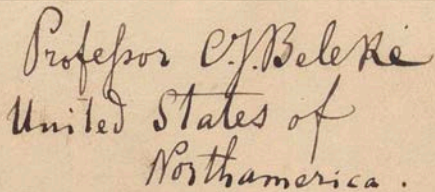 Profeſsor C. J. Beleke
United States of
Northamerica.